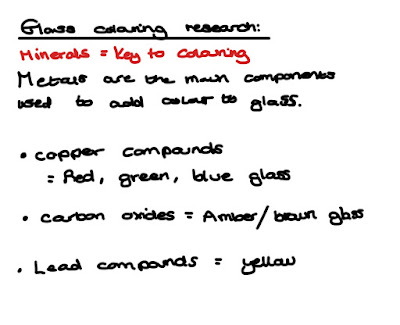 Glass colouring research:
Minerals = Key to colouring
Metals are the main components
used to add colour to glass.
• copper compounds
= Red, green, blue glass
• carbon oxides = Amber/brown glass
• Lead compounds = yellow